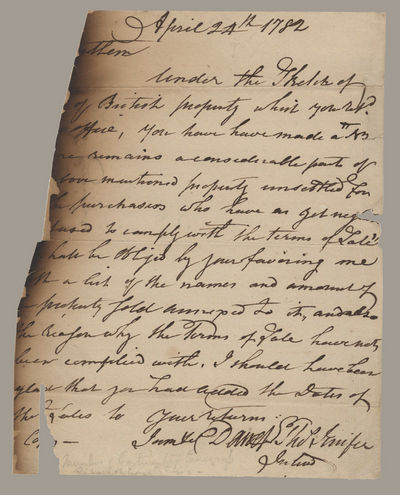 April 24th 1782
tlem
Under the Sketch of
of British property which you retd.
office, you have have made a NB
re remains a considerable part of
bove mentioned property unsettled for
purchasers who have as yet neg
used to comply with the terms of Sale
hall be oblijed by your favoring me
a list of the names and amount of
property sold annexed to it, and also
the reason why the Terms of Sale have not
been complied with. I should have been
glad that you had added the Dates of
the Sales to your returns
Copy — Danl of St Thos Jenifer
Intend